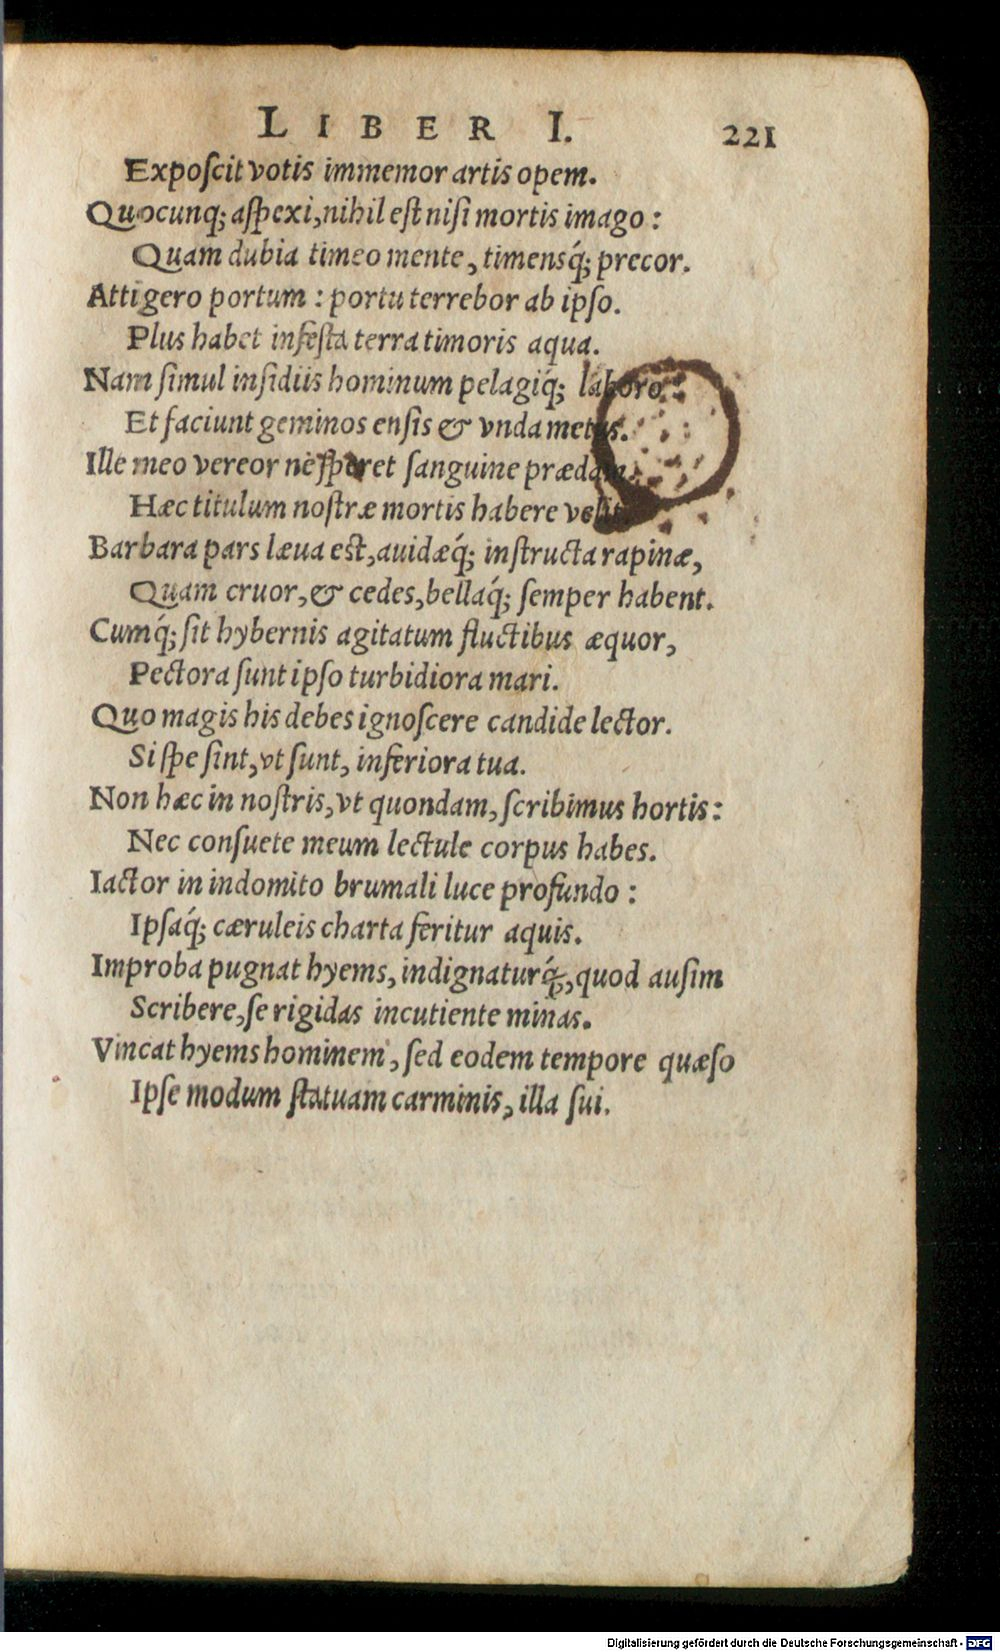 LIBER I. 221
Exposcit votis immemor artis opem.
Quocunq; aspexi, nihil est nisi mortis imago:
Quam dubia timeo mente, timensq́; precor.
Attigero portum: portu terrebor ab ipso.
Plus habet infesta terra timoris aqua.
Nam simul insidiis hominum pelagiq́; laboro.
Et faciunt geminos ensis & vnda metus.
Ille meo vereor ne speret sanguine prædam.
Hæc titulum nostræ mortis habere velit.
Barbara pars læua est, auidæq́; instructa rapinæ,
Quam cruor, & cedes, bellaq́; semper habent.
Cumq́; sit hybernis agitatum fluctibus æquor,
Pectora sunt ipso turbidiora mari.
Quo magis his debes ignoscere candide lector.
Si spe sint, vt sunt, inferiora tua.
Non hæc in nostris, vt quondam, scribimus hortis:
Nec consuete meum lectule corpus habes.
Iactor in indomito brumali luce profundo:
Ipsaq́; cæruleis charta feritur aquis.
Improba pugnat hyems, indignaturq́;, quod ausim
Scribere, se rigidas incutiente minas.
Vincat hyems hominem, sed eodem tempore quæso
Ipse modum statuam carminis, illa sui.
Digitalisierung gefördert durch die Deutsche Forschungsgemeinschaft - DFG